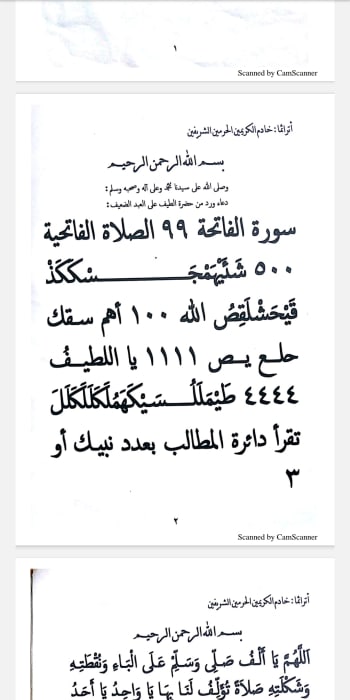 ١
Scanned by CamScanner
أتراثنا: خادم الكريمين الحرمين الشريفين
بسم الله الرحمن الرحيم
وصلى الله على سيدنا محمد وعلى آله وصحبه وسلم:
دعاء ورد من حضرة الطيف على العبد الضعيف:
سورة الفاتحة ٩٩ الصلاة الفاتحية
٥٠٠
الله ١٠٠ أهم سقك
حلع يص ١١١١ يا اللطيف
٤٤٤٤
تقرأ دائرة المطالب بعدد نبيك أو
٣
٢
Scanned by CamScanner
أتراثنا: خادم الكريمين الحرمين الشريفين
بسم الله الرحمن الرحيم
اَللَّهُمَّ يَا أَلْفُ صَلِّي وَسَلِّمْ عَلَى الْبَاءِ وَنُقْطَتِهِ
وَشَكْلَتِهِ صَلَاةً تُؤَلِّفُ لَنَا بِهَا يَا وَاحِدُ يَا أَحَدُ